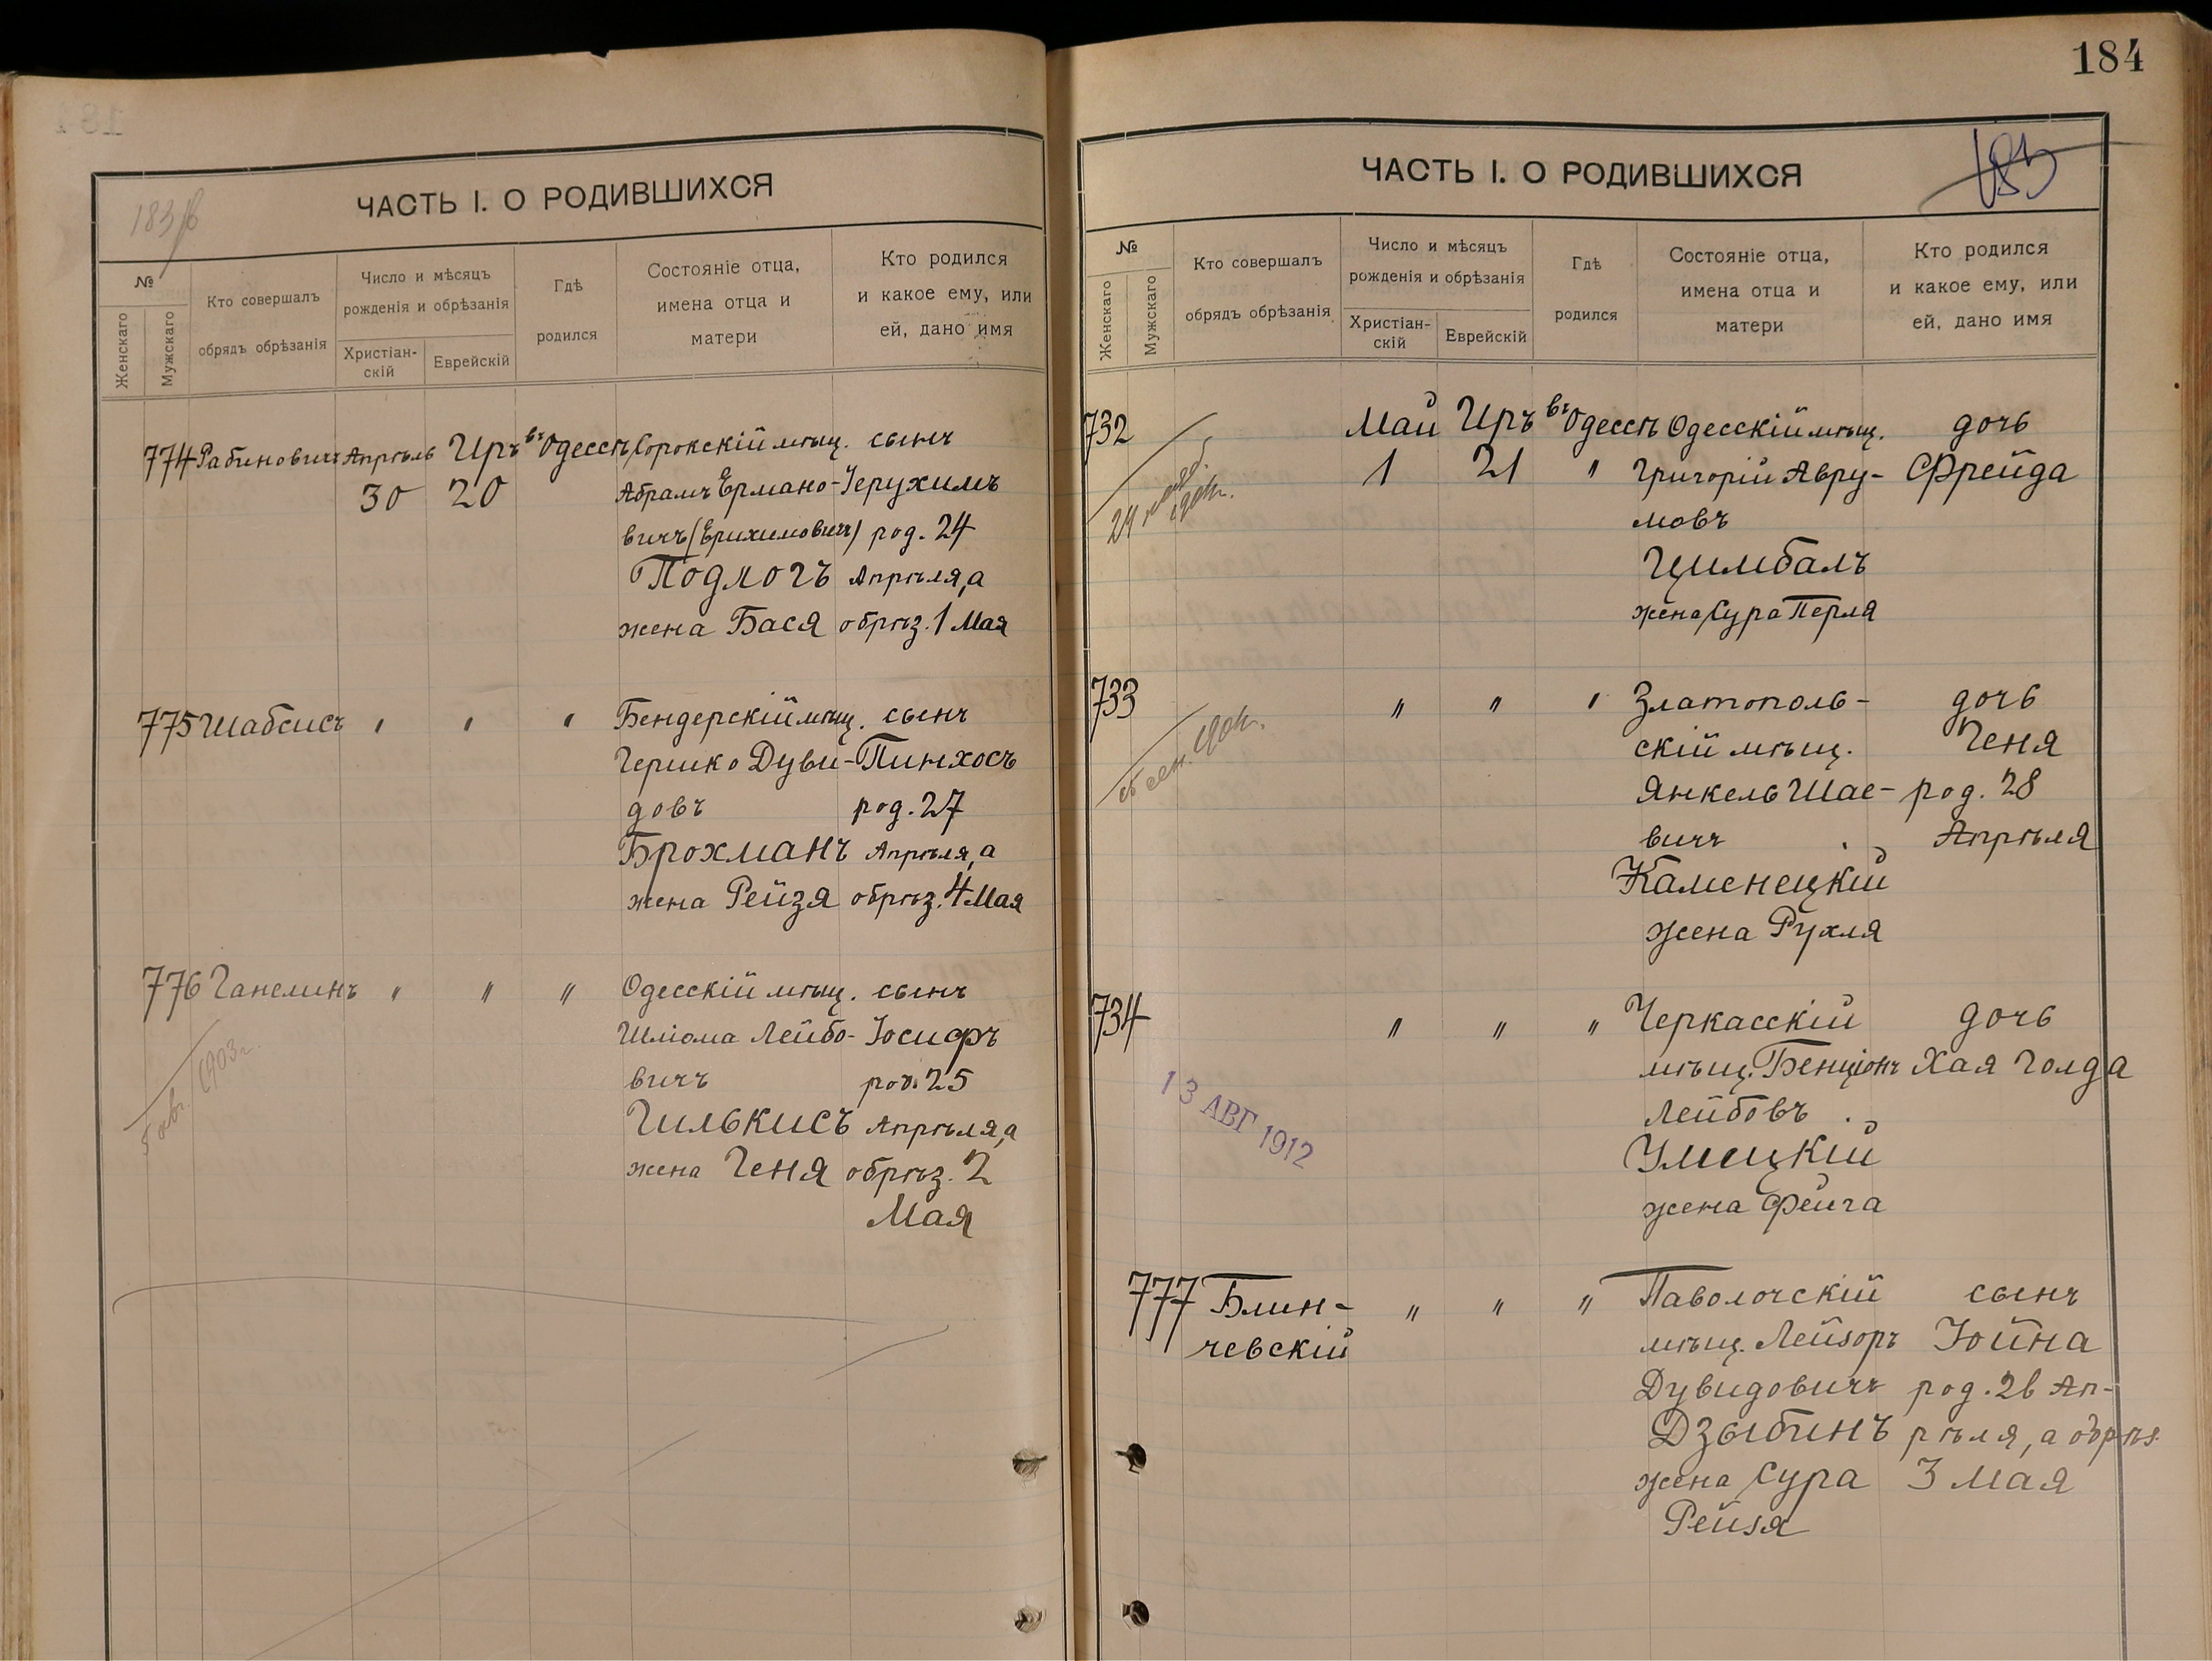 184
ЧАСТЬ I. О РОДИВШИХСЯ
183
№
Женскаго
Мужскаго
Кто совершалъ
обрядъ обрѣзанія
Число и мѣсяцъ
рожденія и обрѣзанія
Христіан-
скій
Еврейскій
Гдѣ
родился
Состояніе отца,
имена отца и
матери
Кто родился
и какое ему, или
ей, дано имя
774 Рабиновичъ Апрѣль Иръ въ Одессѣ Сорокскій мѣщ. сынъ
30 20 Абрамъ Ермано- Іерухимъ
вичъ (Ерихимовичъ) род. 24
Подлогъ Апрѣля, а
жена Бася обрѣз. 1 Мая
775 Шабсисъ " " " Бендерскій мѣщ. сынъ
Гершко Дуви- Пинхосъ
довъ род. 27
Брохманъ Апрѣля, а
жена Рейзя обрѣз. 4 Мая
776 Ганелинъ " " " Одесскій мѣщ. сынъ
Шліома Лейбо- Іосифъ
вичъ род. 25
1903 г.
Гилькисъ Апрѣля, а
жена Геня обрѣз. 2
Мая
ЧАСТЬ I. О РОДИВШИХСЯ
№
Женскаго
Мужскаго
Кто совершалъ
обрядъ обрѣзанія
Число и мѣсяцъ
рожденія и обрѣзанія
Христіан-
скій
Еврейскій
Гдѣ
родился
Состояніе отца,
имена отца и
матери
Кто родился
и какое ему, или
ей, дано имя
732 Май Иръ въ Одессѣ Одесскій мѣщ. дочь
1 21 " Григорій Авру- Фрейда
мовъ
Цимбалъ
жена Сура Перля
733 " " " Златополь- дочь
скій мѣщ. Геня
Янкель Шае- род. 28
вичъ Апрѣля
Каменецкій
жена Рухля
734 " " " Черкасскій дочь
мѣщ. Бенціонъ Хая Голда
Лейбовъ
13 АВГ 1912
Умецкій
жена Фейга
777 Блин- " " " Паволочскій сынъ
чевскій мѣщ. Лейзоръ Іойна
Дувидовичъ род. 26 Ап-
Дзыбинъ рѣля, а обрѣз.
жена Сура 3 Мая
Рейзя